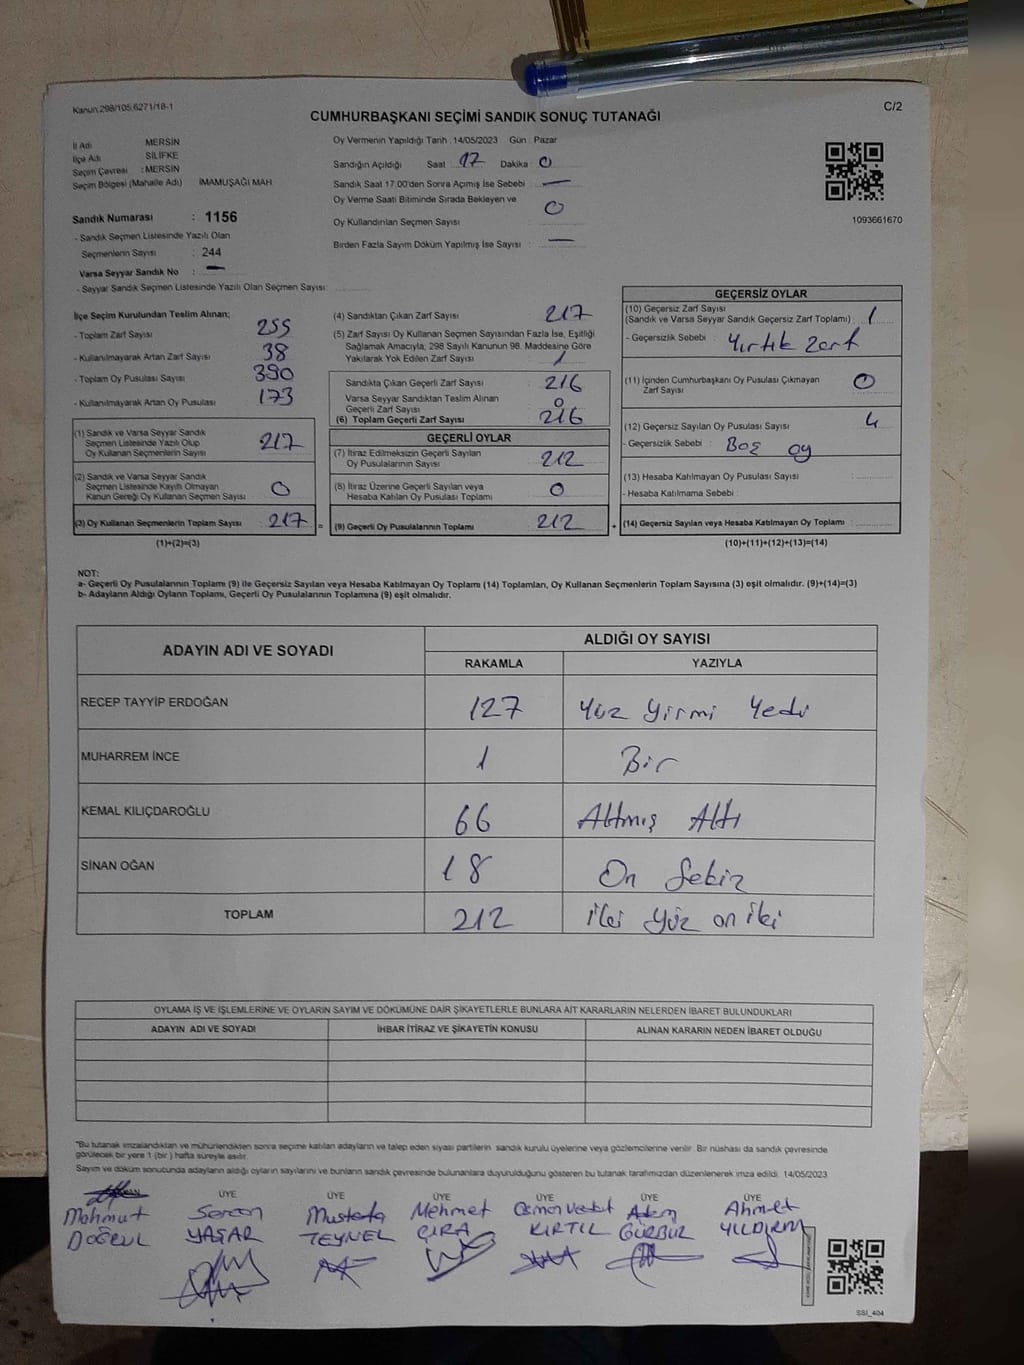 Kanun:298/105,6271/18-1
C/2
CUMHURBAŞKANI SEÇİMİ SANDIK SONUÇ TUTANAĞI
İl Adı MERSİN
İlçe Adı SİLİFKE
Seçim Çevresi : MERSİN
Seçim Bölgesi (Mahalle Adı) İMAMUŞAĞI MAH
Sandık Numarası : 1156
- Sandık Seçmen Listesinde Yazılı Olan
Seçmenlerin Sayısı : 244
Varsa Seyyar Sandık No : —
- Seyyar Sandık Seçmen Listesinde Yazılı Olan Seçmen Sayısı:
Oy Vermenin Yapıldığı Tarih : 14/05/2023 Gün : Pazar
Sandığın Açıldığı Saat : 17 Dakika : 0
Sandık Saat 17.00'den Sonra Açımış İse Sebebi : —
Oy Verme Saati Bitiminde Sırada Bekleyen ve
Oy Kullandırılan Seçmen Sayısı : 0
Birden Fazla Sayım Döküm Yapılmış İse Sayısı : —
1093661670
İlçe Seçim Kurulundan Teslim Alınan;
- Toplam Zarf Sayısı 255
- Kullanılmayarak Artan Zarf Sayısı 38
- Toplam Oy Pusulası Sayısı 390
- Kullanılmayarak Artan Oy Pusulası 173
(1) Sandık ve Varsa Seyyar Sandık
Seçmen Listesinde Yazılı Olup
Oy Kullanan Seçmenlerin Sayısı 217
(2) Sandık ve Varsa Seyyar Sandık
Seçmen Listesinde Kayıtlı Olmayan
Kanun Gereği Oy Kullanan Seçmen Sayısı 0
(3) Oy Kullanan Seçmenlerin Toplam Sayısı 217 =
(1)+(2)=(3)
(4) Sandıktan Çıkan Zarf Sayısı 217
(5) Zarf Sayısı Oy Kullanan Seçmen Sayısından Fazla İse, Eşitliği
Sağlamak Amacıyla; 298 Sayılı Kanunun 98. Maddesine Göre
Yakılarak Yok Edilen Zarf Sayısı : 1
Sandıkta Çıkan Geçerli Zarf Sayısı 216
Varsa Seyyar Sandıktan Teslim Alınan
Geçerli Zarf Sayısı 0
(6) Toplam Geçerli Zarf Sayısı 216
GEÇERLİ OYLAR
(7) İtiraz Edilmeksizin Geçerli Sayılan
Oy Pusulalarının Sayısı 212
(8) İtiraz Üzerine Geçerli Sayılan veya
Hesaba Katılan Oy Pusulası Toplamı 0
(9) Geçerli Oy Pusulalarının Toplamı 212 +
GEÇERSİZ OYLAR
(10) Geçersiz Zarf Sayısı
(Sandık ve Varsa Seyyar Sandık Geçersiz Zarf Toplamı) : 1
- Geçersizlik Sebebi : Yırtık zarf
(11) İçinden Cumhurbaşkanı Oy Pusulası Çıkmayan
Zarf Sayısı 0
(12) Geçersiz Sayılan Oy Pusulası Sayısı 4
- Geçersizlik Sebebi : Boş oy
(13) Hesaba Katılmayan Oy Pusulası Sayısı
- Hesaba Katılmama Sebebi :
(14) Geçersiz Sayılan veya Hesaba Katılmayan Oy Toplamı :
(10)+(11)+(12)+(13)=(14)
NOT:
a- Geçerli Oy Pusulalarının Toplamı (9) ile Geçersiz Sayılan veya Hesaba Katılmayan Oy Toplamı (14) Toplamları, Oy Kullanan Seçmenlerin Toplam Sayısına (3) eşit olmalıdır. (9)+(14)=(3)
b- Adayların Aldığı Oyların Toplamı, Geçerli Oy Pusulalarının Toplamına (9) eşit olmalıdır.
ADAYIN ADI VE SOYADI ALDIĞI OY SAYISI
RAKAMLA YAZIYLA
RECEP TAYYİP ERDOĞAN 127 Yüz Yirmi Yedi
MUHARREM İNCE 1 Bir
KEMAL KILIÇDAROĞLU 66 Altmış Altı
SİNAN OĞAN 18 On Sekiz
TOPLAM 212 iki yüz on iki
OYLAMA İŞ VE İŞLEMLERİNE VE OYLARIN SAYIM VE DÖKÜMÜNE DAİR ŞİKAYETLERLE BUNLARA AİT KARARLARIN NELERDEN İBARET BULUNDUKLARI
ADAYIN ADI VE SOYADI İHBAR İTİRAZ VE ŞİKAYETİN KONUSU ALINAN KARARIN NEDEN İBARET OLDUĞU
*Bu tutanak imzalandıktan ve mühürlendikten sonra seçime katılan adayların ve talep eden siyasi partilerin sandık kurulu üyelerine veya gözlemcilerine verilir. Bir nüshası da sandık çevresinde
görülecek bir yere 1 (bir) hafta süreyle asılır.
Sayım ve döküm sonucunda adayların aldığı oyların sayılarını ve bunların sandık çevresinde bulunanlara duyurulduğunu gösteren bu tutanak tarafımızdan düzenlenerek imza edildi. 14/05/2023
ÜYE ÜYE ÜYE ÜYE ÜYE ÜYE
Mahmut Sercan Mustafa Mehmet Osman Vedat Adem Ahmet
DOĞRUL YAŞAR TEYNEL ÇIRA KIRTIL GÜRBÜR YILDIRIM
SSI_404